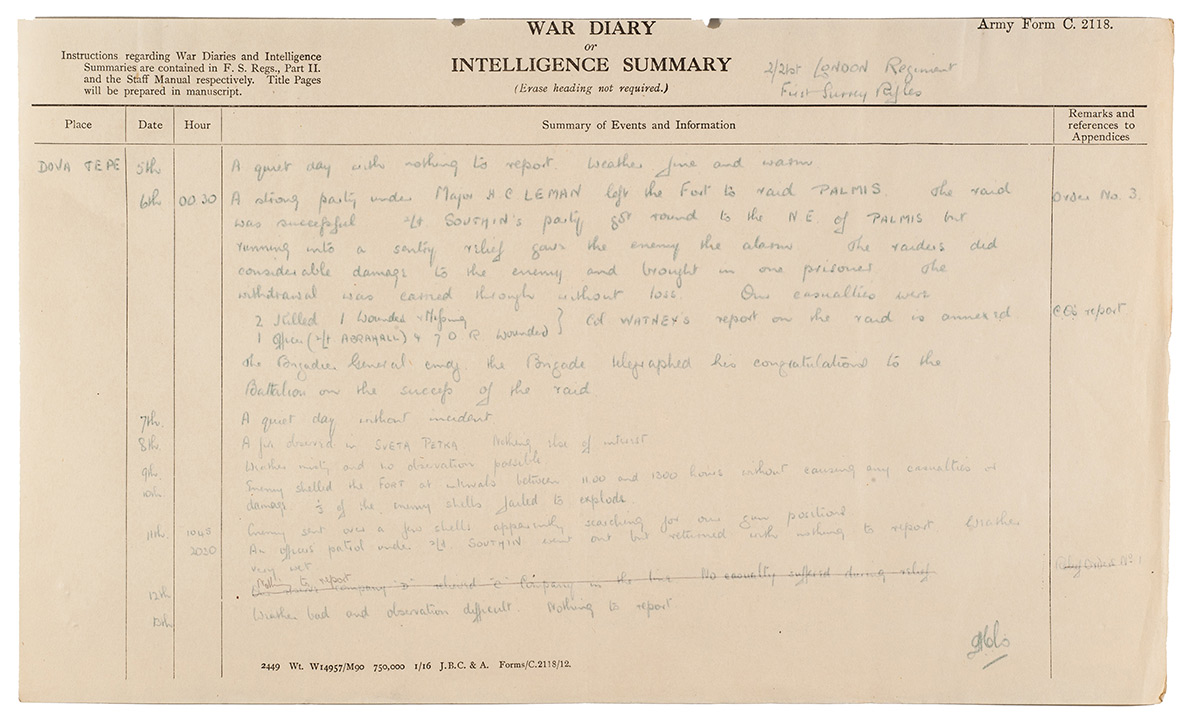 WAR DIARY
or
INTELLIGENCE SUMMARY
(Erase heading not required.)
Army Form C. 2118.
Instructions regarding War Diaries and Intelligence
Summaries are contained in F. S. Regs., Part II.
and the Staff Manual respectively. Title Pages
will be prepared in manuscript.
2/21st LONDON Regiment
First Surrey Rifles
Place Date Hour Summary of Events and Information Remarks and references to Appendices
DOVA TEPE 5th A quiet day with nothing to report. Weather fine and warm
6th 00.30 A strong party under Major H.C LEMAN left the Fort to raid PALMIS. The raid Order No. 3.
was successful 2/Lt. SOUTHIN's party got round to the N.E. of PALMIS but
running into a sentry relief gave the enemy the alarm. The raiders did
considerable damage to the enemy and brought in one prisoner. The
withdrawal was carried through without loss. Our casualties were
2 Killed 1 Wounded & Missing } Col WATNEY's report on the raid is annexed CO's report
1 Officer (2/Lt ABRAHALL) & 7 O R Wounded
The Brigadier General cmdg. the Brigade telegraphed his congratulations to the
Battalion on the success of the raid
7th. A quiet day without incident.
8th. A fire observed in SVETA PETKA. Nothing else of interest
9th. Weather misty and no observation possible.
10th. Enemy shelled the FORT at intervals between 11.00 and 1300 hours without causing any casualties or
damage. ⅓ of the enemy shells failed to explode.
11th. 1045 Enemy sent over a few shells apparently searching for our gun positions
2030 An officers patrol under 2/Lt SOUTHIN went out but returned with nothing to report Weather
very wet
12th Nothing to report
Company "D" relieved "C" Company in the line No casualty suffered during relief Order No 1
13th Weather bad and observation difficult. Nothing to report
2449 Wt. W14957/M90 750,000 1/16 J.B.C. & A. Forms/C.2118/12.